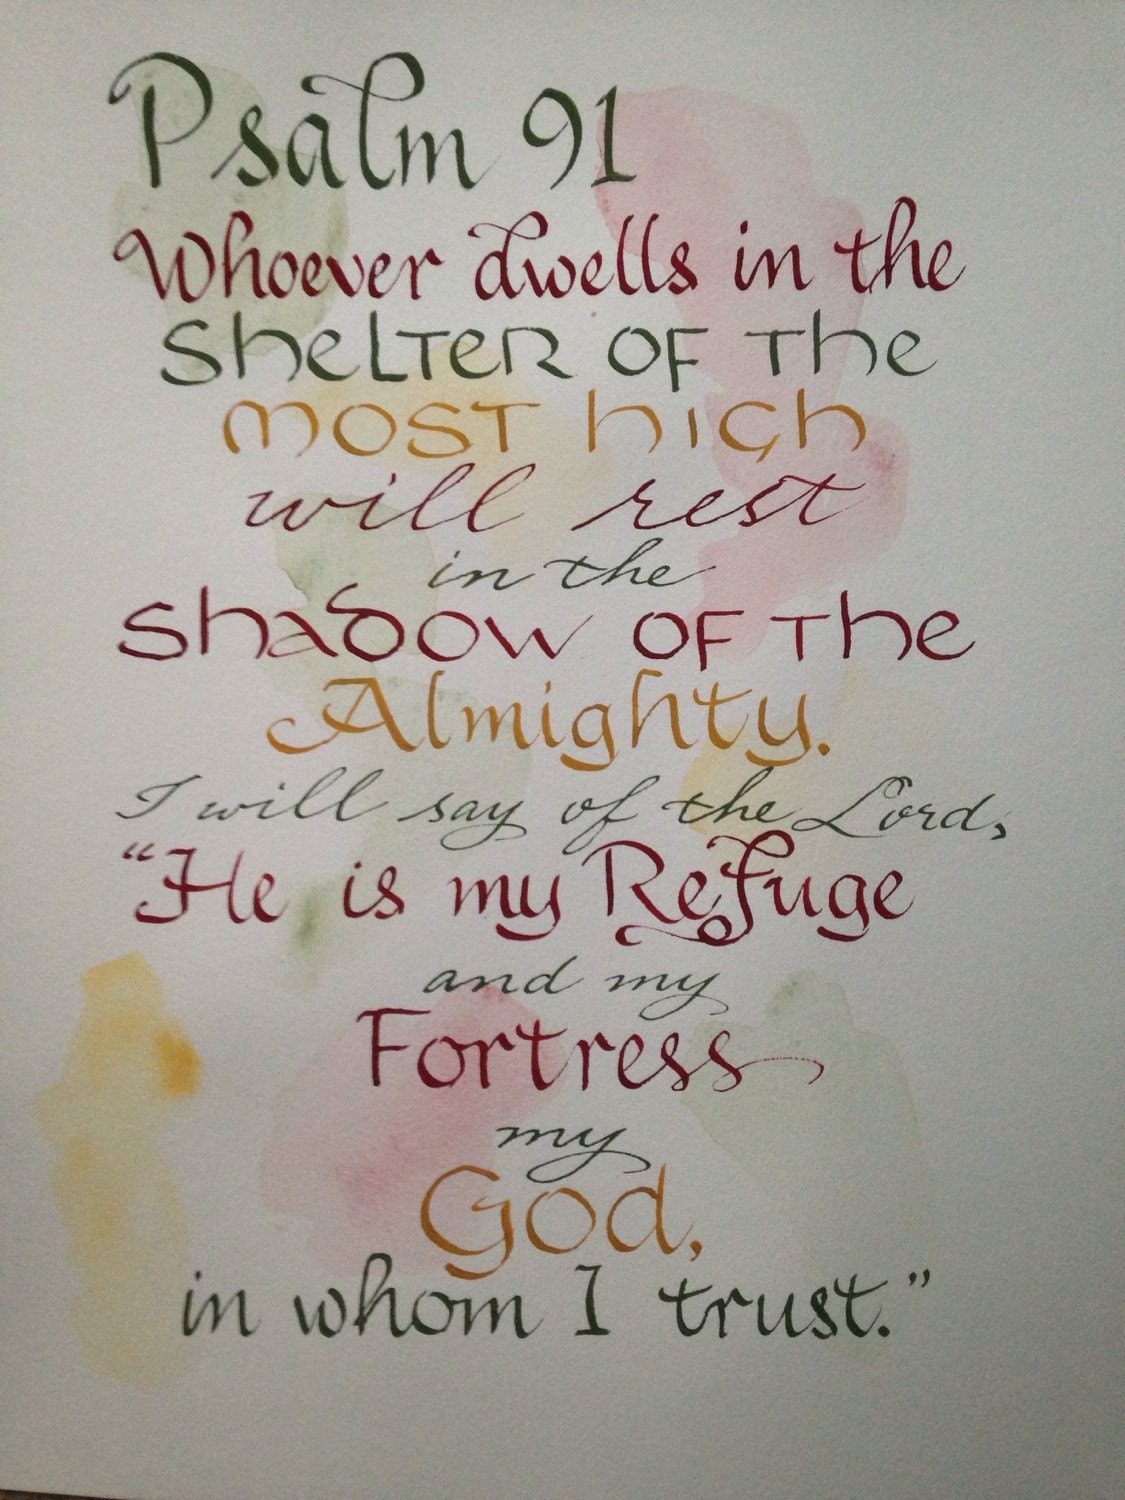 Psalm 91
Whoever dwells in the
Shelter of the
Most high
will rest
in the
Shadow of the
Almighty.
I will say of the Lord,
“He is my Refuge
and my
Fortress
my
God,
in whom I trust.”